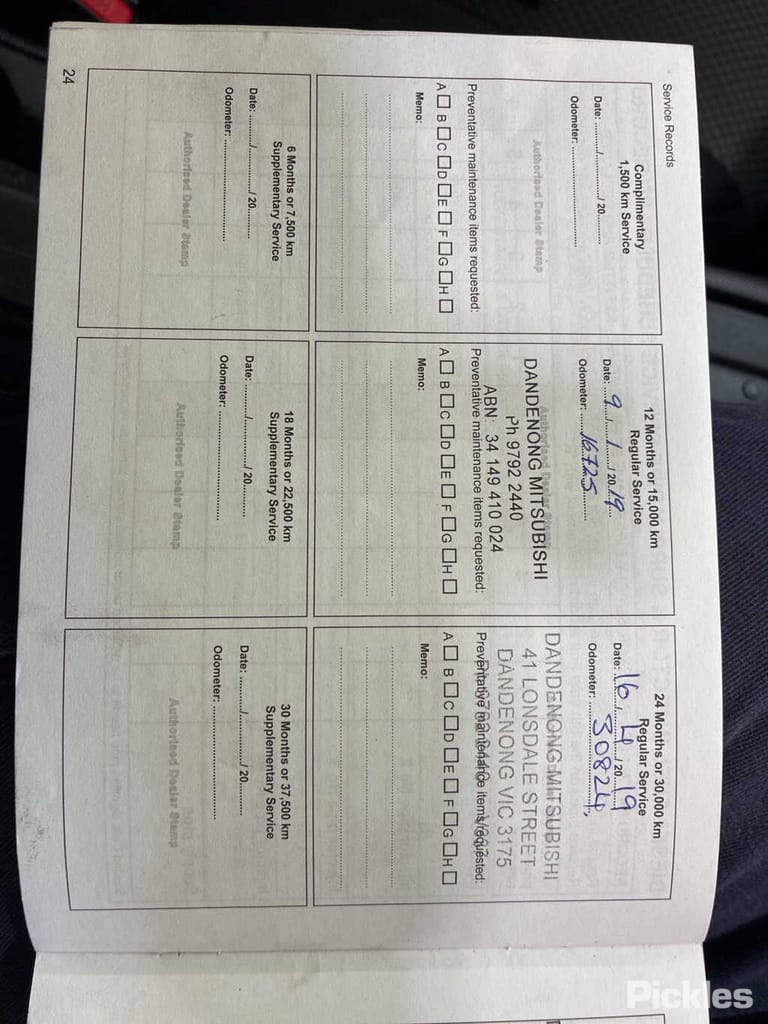 Service Records
Complimentary
1,500 km Service
Date: ........./............/ 20.........
Odometer: ................................
Authorised Dealer Stamp
Preventative maintenance items requested:
A □ B □ C □ D □ E □ F □ G □ H □
Memo:
12 Months or 15,000 km
Regular Service
Date: 9 / 1 / 20 19
Odometer: 16725
Authorised Dealer Stamp
DANDENONG MITSUBISHI
Ph 9792 2440
ABN: 34 149 410 024
Preventative maintenance items requested:
A □ B □ C □ D □ E □ F □ G □ H □
Memo:
24 Months or 30,000 km
Regular Service
Date: 16 / 4 / 20 19
Odometer: 30824
DANDENONG MITSUBISHI
41 LONSDALE STREET
DANDENONG VIC 3175
Preventative maintenance items requested:
A □ B □ C □ D □ E □ F □ G □ H □
Memo:
6 Months or 7,500 km
Supplementary Service
Date: ........./............/ 20.........
Odometer: ................................
Authorised Dealer Stamp
18 Months or 22,500 km
Supplementary Service
Date: ........./............/ 20.........
Odometer: ................................
Authorised Dealer Stamp
30 Months or 37,500 km
Supplementary Service
Date: ........./............/ 20.........
Odometer: ................................
Authorised Dealer Stamp
24
Pickles